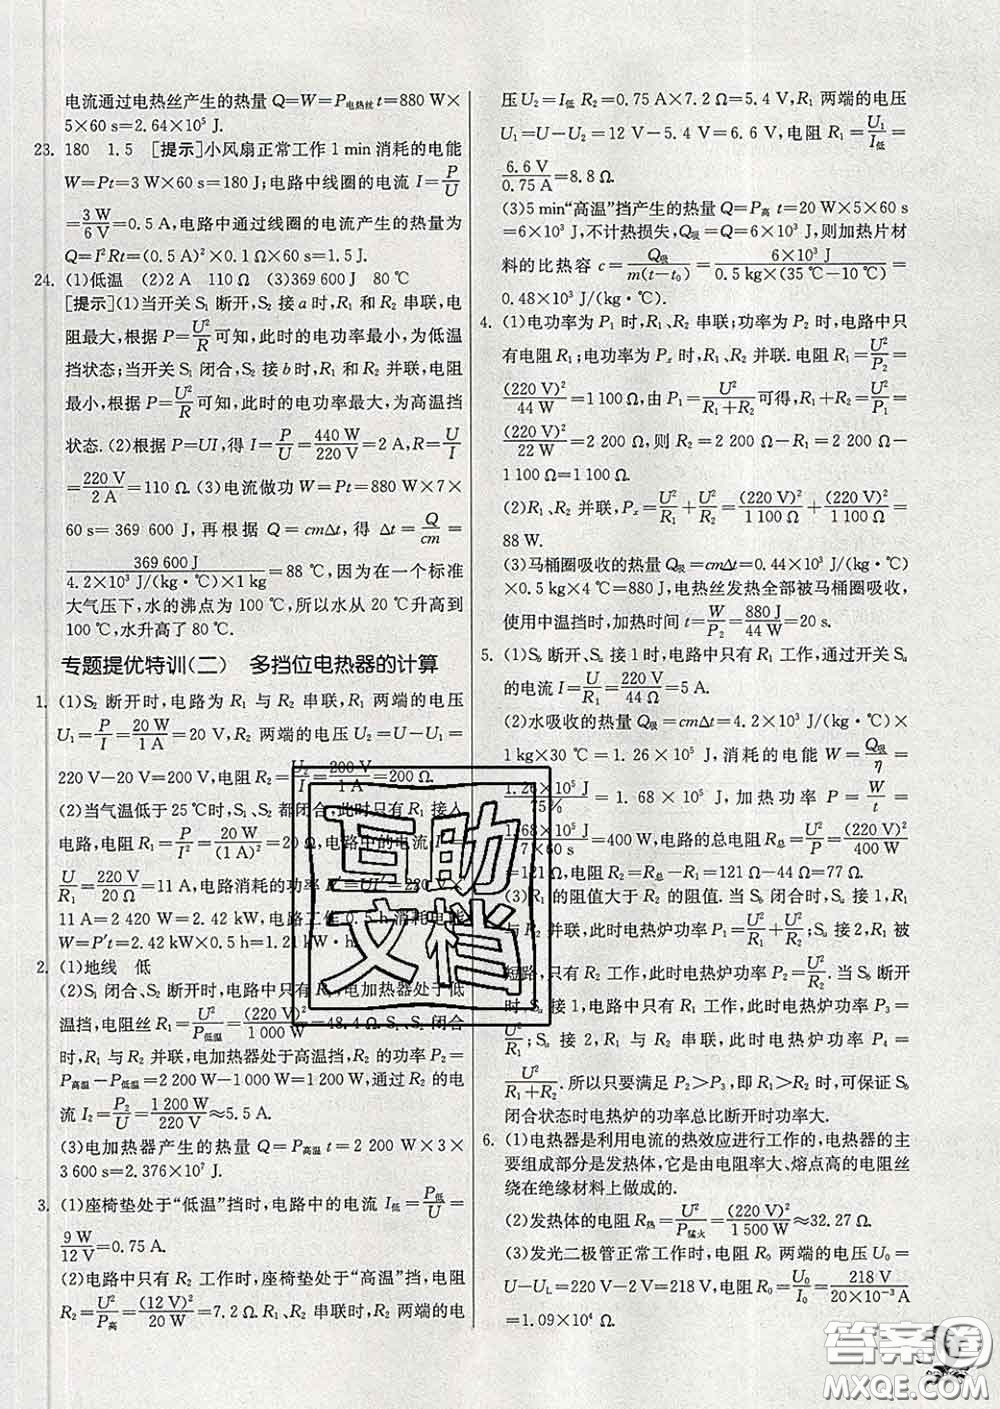 电流通过电热丝产生的热量 Q=W=P电热丝 t=880 W×
5×60 s=2.64×10⁵ J.
23. 180 1.5 [提示]小风扇正常工作 1 min 消耗的电能
W=Pt=3 W×60 s=180 J;电路中线圈的电流 I=P/U
=3 W/6 V=0.5 A,电路中通过线圈的电流产生的热量为
Q=I²Rt=(0.5 A)²×0.1 Ω×60 s=1.5 J.
24. (1)低温 (2)2 A 110 Ω (3)369 600 J 80 ℃
[提示](1)当开关 S₁ 断开,S₂ 接 a 时,R₁ 和 R₂ 串联,电
阻最大,根据 P=U²/R 可知,此时的电功率最小,为低温
挡状态;当开关 S₁ 闭合,S₂ 接 b 时,R₁ 和 R₂ 并联,电阻
最小,根据 P=U²/R 可知,此时的电功率最大,为高温挡
状态. (2)根据 P=UI,得 I=P/U=440 W/220 V=2 A,R=U/I
=220 V/2 A=110 Ω. (3)电流做功 W=Pt=880 W×7×
60 s=369 600 J,再根据 Q=cmΔt,得 Δt=Q/cm=
369 600 J/4.2×10³ J/(kg·℃)×1 kg=88 ℃,因为在一个标准
大气压下,水的沸点为 100 ℃,所以水从 20 ℃升高到
100 ℃,水升高了 80 ℃.
专题提优特训(二) 多挡位电热器的计算
1. (1)S₂ 断开时,电路为 R₁ 与 R₂ 串联,R₁ 两端的电压
U₁=P/I=20 W/1 A=20 V,R₂ 两端的电压 U₂=U-U₁=
220 V-20 V=200 V,电阻 R₂=U₂/I=200 V/1 A=200 Ω.
(2)当气温低于 25 ℃时,S₁、S₂ 都闭合,此时只有 R₁ 接入
电路,电阻 R₁=P/I²=20 W/(1 A)²=20 Ω,电路中的电流 I′=
U/R₁=220 V/20 Ω=11 A,电路消耗的功率 P′=UI′=220 V×
11 A=2 420 W=2.42 kW,电路工作 0.5 h 消耗电能
W=P′t=2.42 kW×0.5 h=1.21 kW·h.
2. (1)地线 低
(2)S₁ 闭合、S₂ 断开时,电路中只有 R₁,电加热器处于低
温挡,电阻丝 R₁=U²/P低温=(220 V)²/1 000 W=48.4 Ω. S₁、S₂ 闭合
时,R₁ 与 R₂ 并联,电加热器处于高温挡,R₂ 的功率 P₂=
P高温-P低温=2 200 W-1 000 W=1 200 W,通过 R₂ 的电
流 I₂=P₂/U=1 200 W/220 V≈5.5 A.
(3)电加热器产生的热量 Q=P高温 t=2 200 W×3×
3 600 s=2.376×10⁷ J.
3. (1)座椅垫处于“低温”挡时,电路中的电流 I低=P低/U=
9 W/12 V=0.75 A.
(2)电路中只有 R₂ 工作时,座椅垫处于“高温”挡,电阻
R₂=U²/P高=(12 V)²/20 W=7.2 Ω. R₁、R₂ 串联时,R₂ 两端的电
压 U₂=I低 R₂=0.75 A×7.2 Ω=5.4 V,R₁ 两端的电压
U₁=U-U₂=12 V-5.4 V=6.6 V,电阻 R₁=U₁/I低=
6.6 V/0.75 A=8.8 Ω.
(3)5 min“高温”挡产生的热量 Q=P高 t=20 W×5×60 s
=6×10³ J,不计热损失,Q吸=Q=6×10³ J,则加热片材
料的比热容 c=Q吸/m(t-t₀)=6×10³ J/0.5 kg×(35 ℃-10 ℃)=
0.48×10³ J/(kg·℃).
4. (1)电功率为 P₁ 时,R₁、R₂ 串联;功率为 P₂ 时,电路中只
有电阻 R₁;电功率为 Pₓ 时,R₁、R₂ 并联. 电阻 R₁=U²/P₂=
(220 V)²/44 W=1 100 Ω,由 P₁=U²/R₁+R₂ 可得,R₁+R₂=U²/P₁=
(220 V)²/22 W=2 200 Ω,则 R₂=2 200 Ω-R₁=2 200 Ω-
1 100 Ω=1 100 Ω.
(2)R₁、R₂ 并联,Pₓ=U²/R₁+U²/R₂=(220 V)²/1 100 Ω+(220 V)²/1 100 Ω=
88 W.
(3)马桶圈吸收的热量 Q吸=cmΔt=0.44×10³ J/(kg·℃)
×0.5 kg×4 ℃=880 J,电热丝发热全部被马桶圈吸收,
使用中温挡时,加热时间 t=W/P₂=880 J/44 W=20 s.
5. (1)S_b 断开、S_a 接 1 时,电路中只有 R₁ 工作,通过开关 S_a
的电流 I=U/R₁=220 V/44 Ω=5 A.
(2)水吸收的热量 Q吸=cmΔt=4.2×10³ J/(kg·℃)×
1 kg×30 ℃=1.26×10⁵ J,消耗的电能 W=Q吸/η=
1.26×10⁵ J/75%=1.68×10⁵ J,加热功率 P=W/t=
1.68×10⁵ J/7×60 s=400 W,电路的总电阻 R总=U²/P=(220 V)²/400 W
=121 Ω,电阻 R₂=R总-R₁=121 Ω-44 Ω=77 Ω.
(3)R₁ 的阻值大于 R₂ 的阻值. 当 S_b 闭合时,S_a 接 1,R₁
与 R₂ 并联,此时电热炉功率 P₁=U²/R₁+U²/R₂;S_a 接 2,R₁ 被
短路,只有 R₂ 工作,此时电热炉功率 P₂=U²/R₂. 当 S_b 断开
时,S_a 接 1,电路中只有 R₁ 工作,此时电热炉功率 P₃=
U²/R₁;S_a 接 2,R₁ 与 R₂ 串联,此时电热炉功率 P₄=
U²/R₁+R₂. 所以只要满足 P₂>P₃,即 R₁>R₂ 时,可保证 S_b
闭合状态时电热炉的功率总比断开时功率大.
6. (1)电热器是利用电流的热效应进行工作的,电热器的主
要组成部分是发热体,它是由电阻率大、熔点高的电阻丝
绕在绝缘材料上做成的.
(2)发热体的电阻 R热=U²/P猛火=(220 V)²/1 500 W≈32.27 Ω.
(3)发光二极管正常工作时,电阻 R₀ 两端的电压 U₀=
U-U_L=220 V-2 V=218 V,电阻 R₀=U₀/I₀=218 V/20×10⁻³ A
=1.09×10⁴ Ω.
互助
文档
答案圈
MXQE.COM